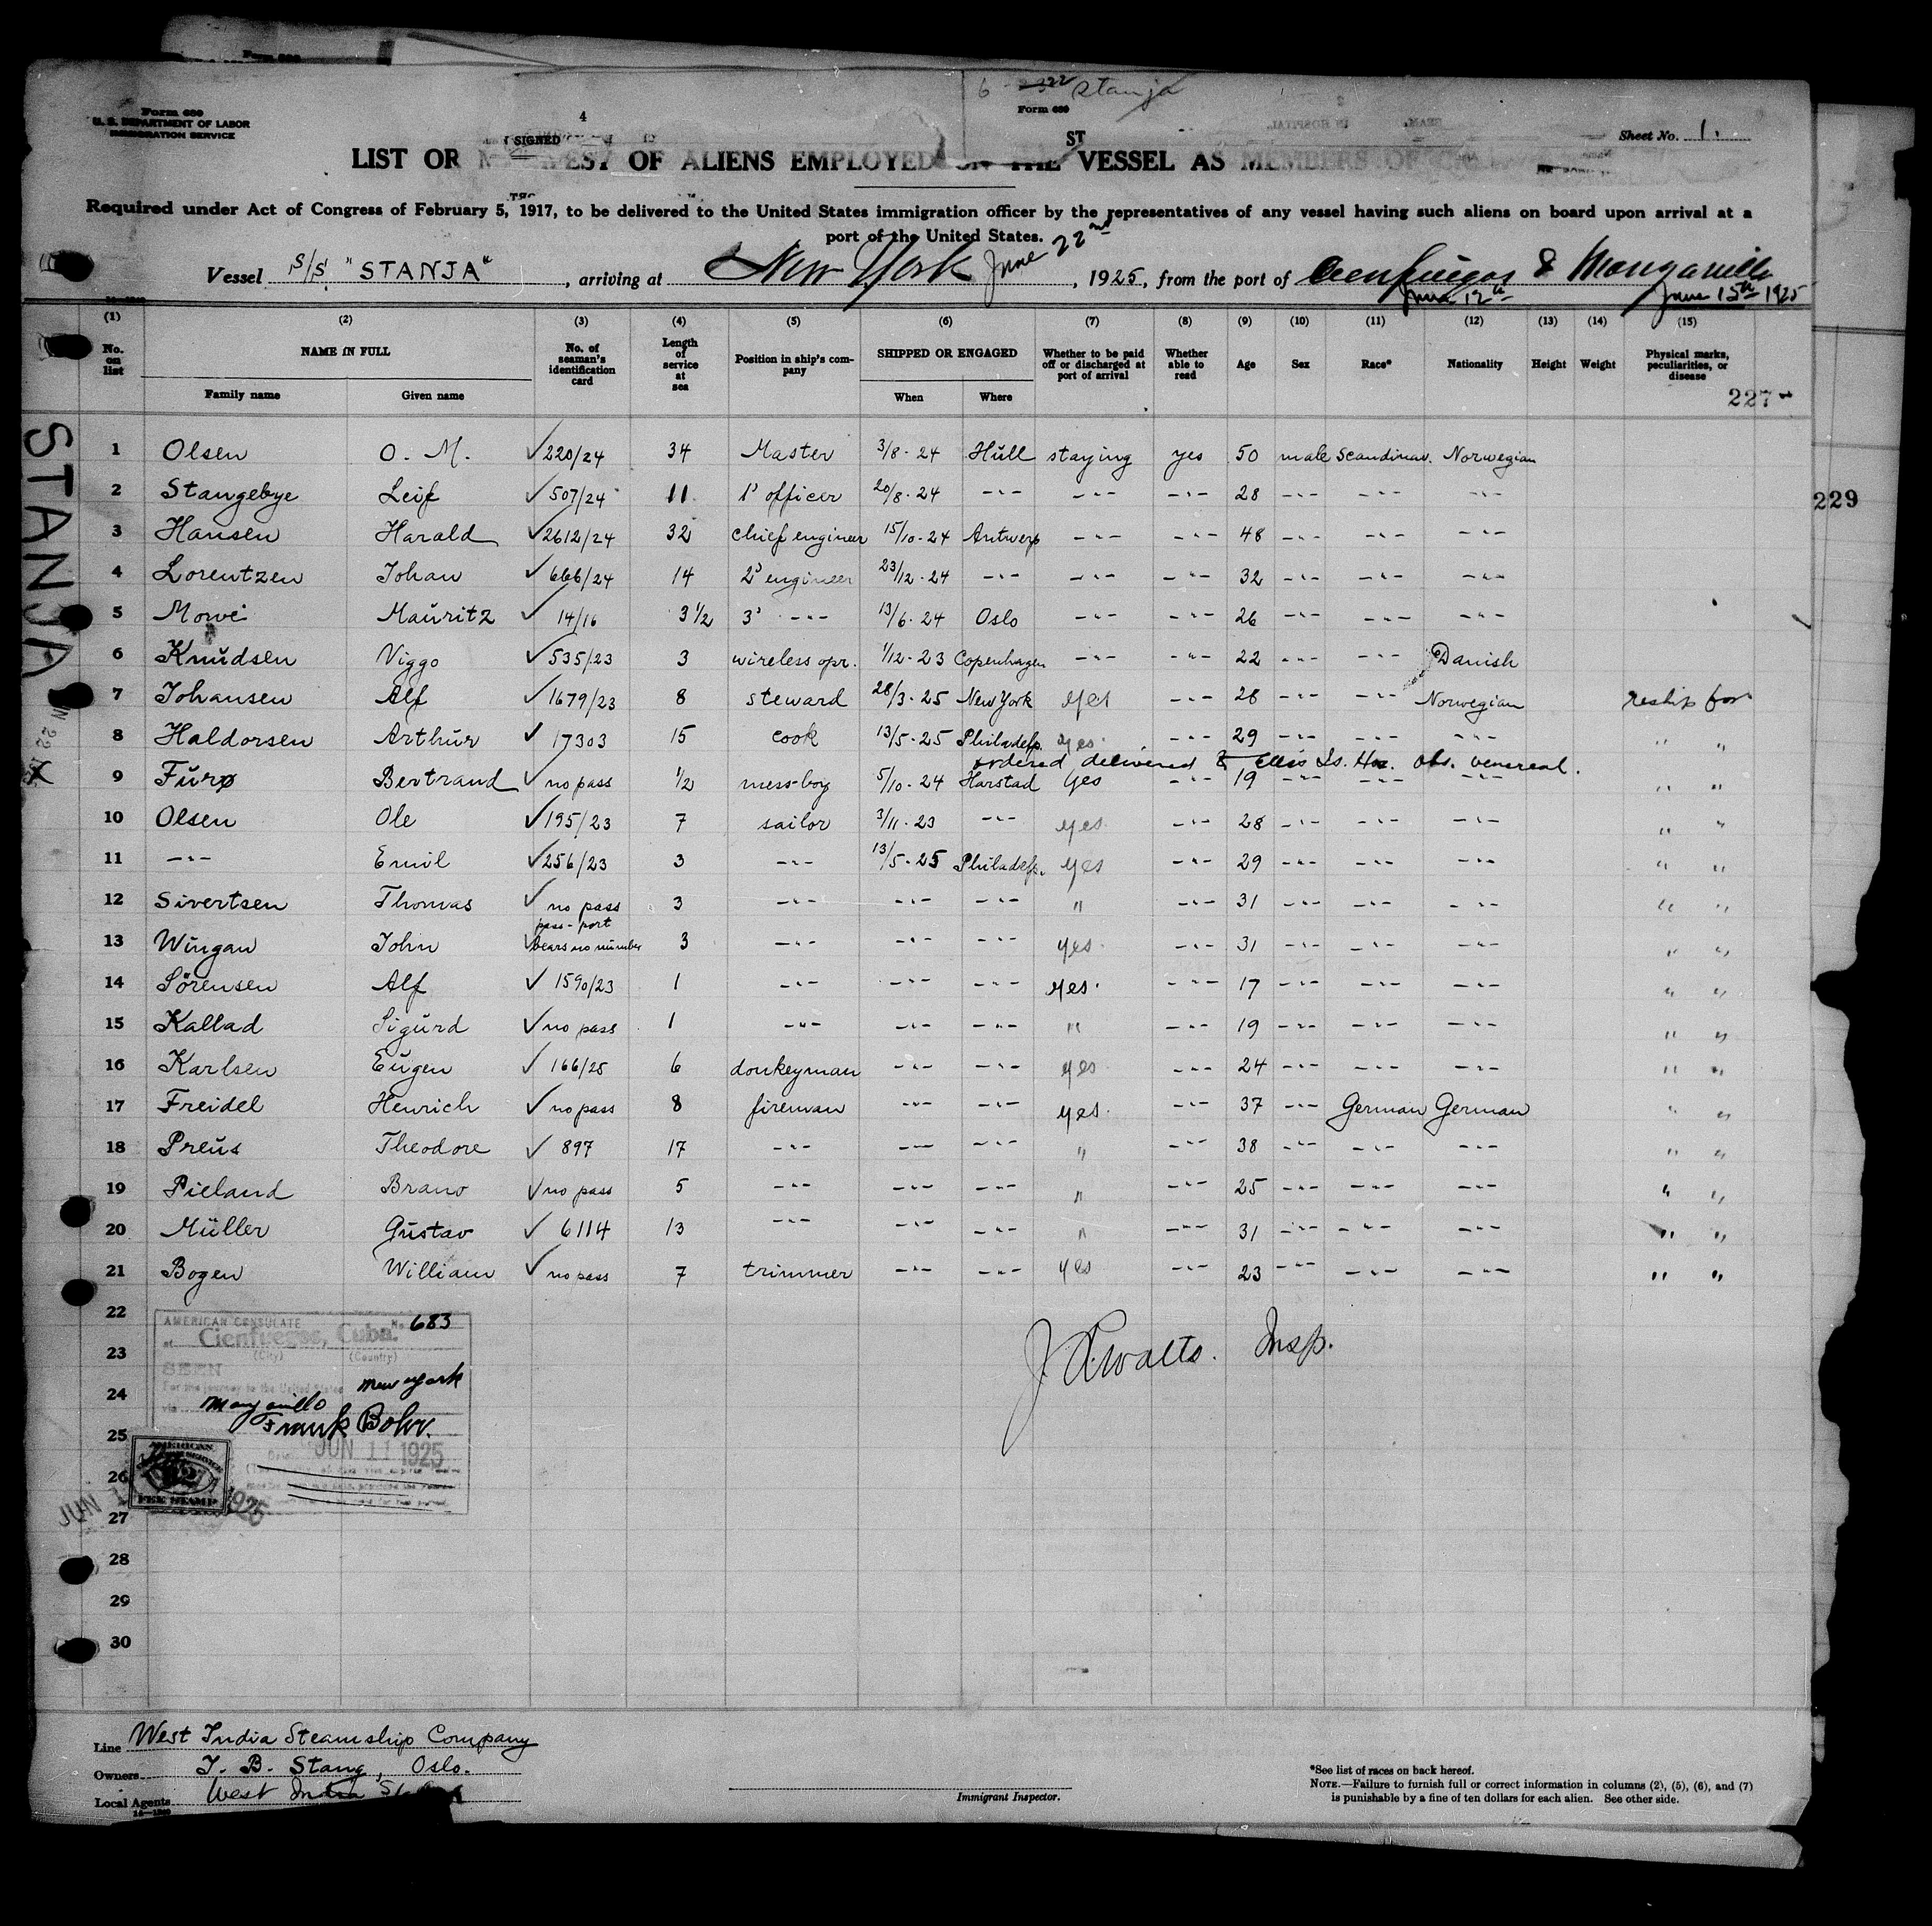 6 Stanja
Form 689
U. S. DEPARTMENT OF LABOR
IMMIGRATION SERVICE
Form 689
4
SIGNED
ST
Sheet No. 1.
LIST OR OF ALIENS EMPLOYED ON THE VESSEL AS MEMBERS OF
Required under Act of Congress of February 5, 1917, to be delivered to the United States immigration officer by the representatives of any vessel having such aliens on board upon arrival at a
port of the United States.
Vessel S/S "STANJA", arriving at New York June 22nd, 1925, from the port of Cienfuegos & Manzanillo
June 12th June 15th 1925
(1) (2) (3) (4) (5) (6) (7) (8) (9) (10) (11) (12) (13) (14) (15)
No. on list NAME IN FULL No. of seaman's identification card Length of service at sea Position in ship's company SHIPPED OR ENGAGED Whether to be paid off or discharged at port of arrival Whether able to read Age Sex Race* Nationality Height Weight Physical marks, peculiarities, or disease
Family name Given name When Where
227
229
STANJA
1 Olsen O. M. ✓ 220/24 34 Master 3/8-24 Hull staying yes 50 male Scandinav. Norwegian
2 Stangebye Leif ✓ 507/24 11 1' officer 20/8-24 -"- -"- -"- 28 -"- -"- -"-
3 Hansen Harald ✓ 2612/24 32 chief engineer 15/10-24 Antwerp -"- -"- 48 -"- -"- -"-
4 Lorentzen Johan ✓ 666/24 14 2' engineer 23/12-24 -"- -"- -"- 32 -"- -"- -"-
5 Mowei Mauritz ✓ 14/16 3 1/2 3' -"- 13/6-24 Oslo -"- -"- 26 -"- -"- -"-
6 Knudsen Viggo ✓ 535/23 3 wireless opr. 1/12-23 Copenhagen -"- -"- 22 -"- -"- Danish
7 Johansen Alf ✓ 1679/23 8 steward 28/3-25 New York yes -"- 28 -"- -"- Norwegian reship for
8 Haldorsen Arthur ✓ 17303 15 cook 13/5-25 Philadelp. yes -"- 29 -"- -"- -"- " "
ordered delivered to Ellis Is. Hos. obs. venereal.
9 Furø Bertrand ✓ no pass 1/2 mess-boy 5/10-24 Harstad yes -"- 19 -"- -"- -"- " "
10 Olsen Ole ✓ 195/23 7 sailor 3/11-23 -"- yes -"- 28 -"- -"- -"- " "
11 -"- Emil ✓ 256/23 3 -"- 13/5-25 Philadelp. yes -"- 29 -"- -"- -"- " "
12 Sivertsen Thomas ✓ no pass 3 -"- -"- -"- " -"- 31 -"- -"- -"- " "
13 Wingan John ✓ pass-port bears no number 3 -"- -"- -"- yes -"- 31 -"- -"- -"- " "
14 Sörensen Alf ✓ 1590/23 1 -"- -"- -"- yes. -"- 17 -"- -"- -"- " "
15 Kallad Sigurd ✓ no pass 1 -"- -"- -"- " -"- 19 -"- -"- -"- " "
16 Karlsen Eugen ✓ 166/25 6 donkeyman -"- -"- yes -"- 24 -"- -"- -"- " "
17 Freidel Henrich ✓ no pass 8 fireman -"- -"- yes. -"- 37 -"- German German " "
18 Preus Theodore ✓ 897 17 -"- -"- -"- " -"- 38 -"- -"- -"- " "
19 Pieland Brano ✓ no pass 5 -"- -"- -"- " -"- 25 -"- -"- -"- " "
20 Müller Gustav ✓ 6114 13 -"- -"- -"- " -"- 31 -"- -"- -"- " "
21 Bogen William ✓ no pass 7 trimmer -"- -"- yes -"- 23 -"- -"- -"- " "
22
23
24
25
26
27
28
29
30
AMERICAN CONSULATE No. 683
at Cienfuegos, Cuba.
(City) (Country)
SEEN
For the journey to the United States New York
via Manzanillo
Frank Bohr.
Date JUN 11 1925
AMERICAN
FEE STAMP
JUN 1925
Insp.
Line West India Steamship Company
Owners T. B. Stang, Oslo.
Local Agents West India
Immigrant Inspector.
*See list of races on back hereof.
NOTE.—Failure to furnish full or correct information in columns (2), (5), (6), and (7)
is punishable by a fine of ten dollars for each alien. See other side.